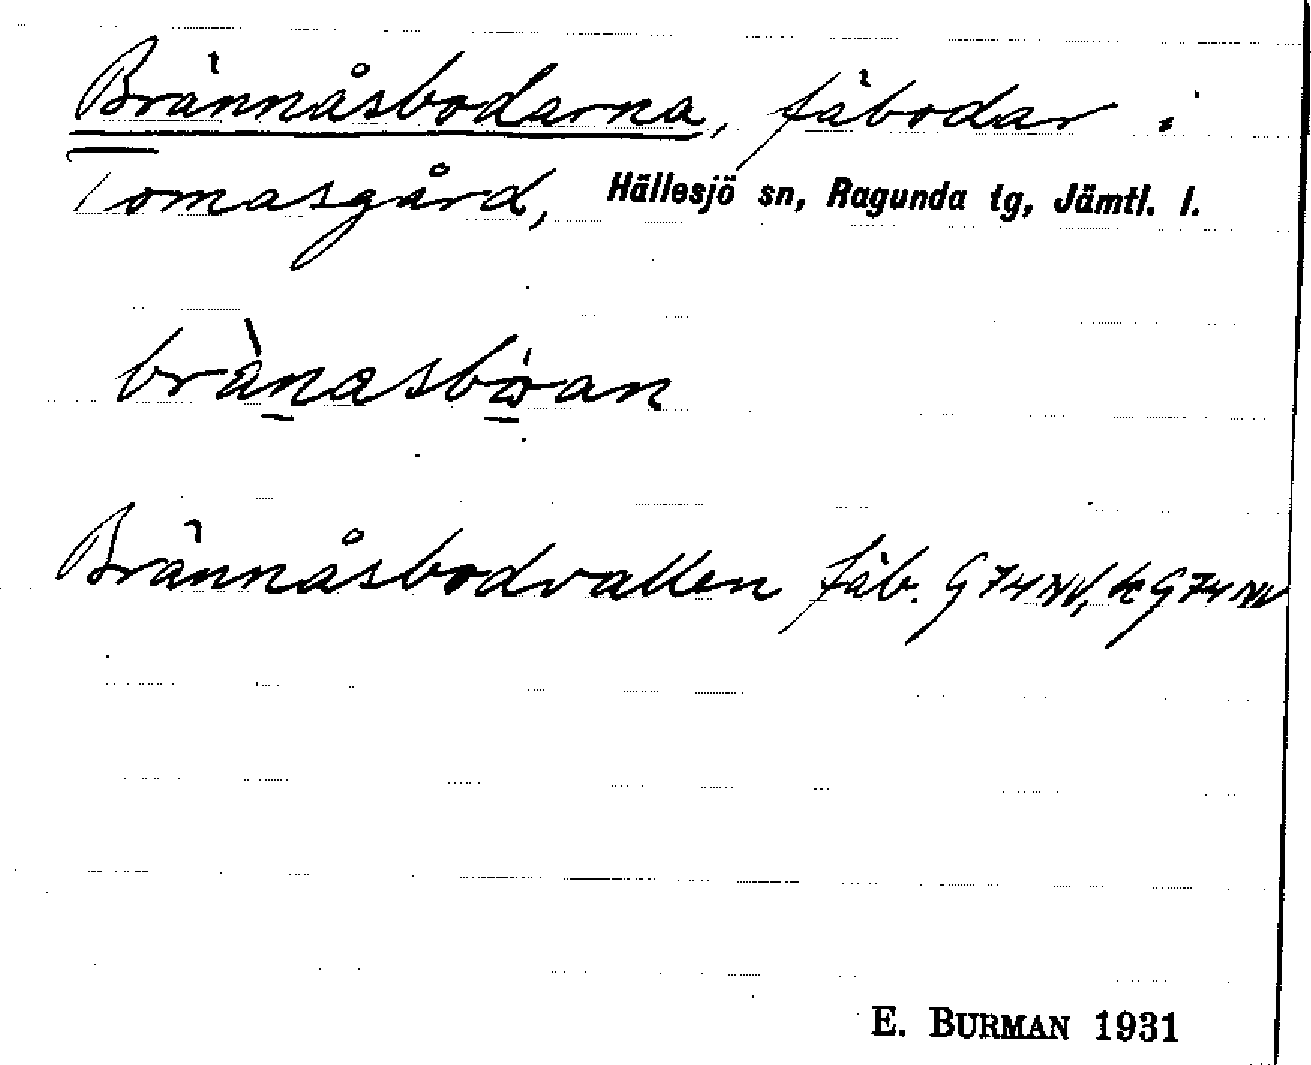 Brännåsbodarna, fäbodar i
Tomasgård, Hällesjö sn, Ragunda tg, Jämtl. l.
Brännåsbodvallen fäb. G 74 NV, k G 74 NV
E. BURMAN 1931